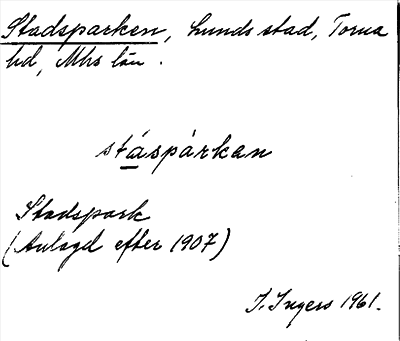 Stadsparken, Lunds stad, Torna
hd, Mhs län.
stáspàrkan
Stadspark
(Anlagd efter 1907)
I. Ingers 1961.